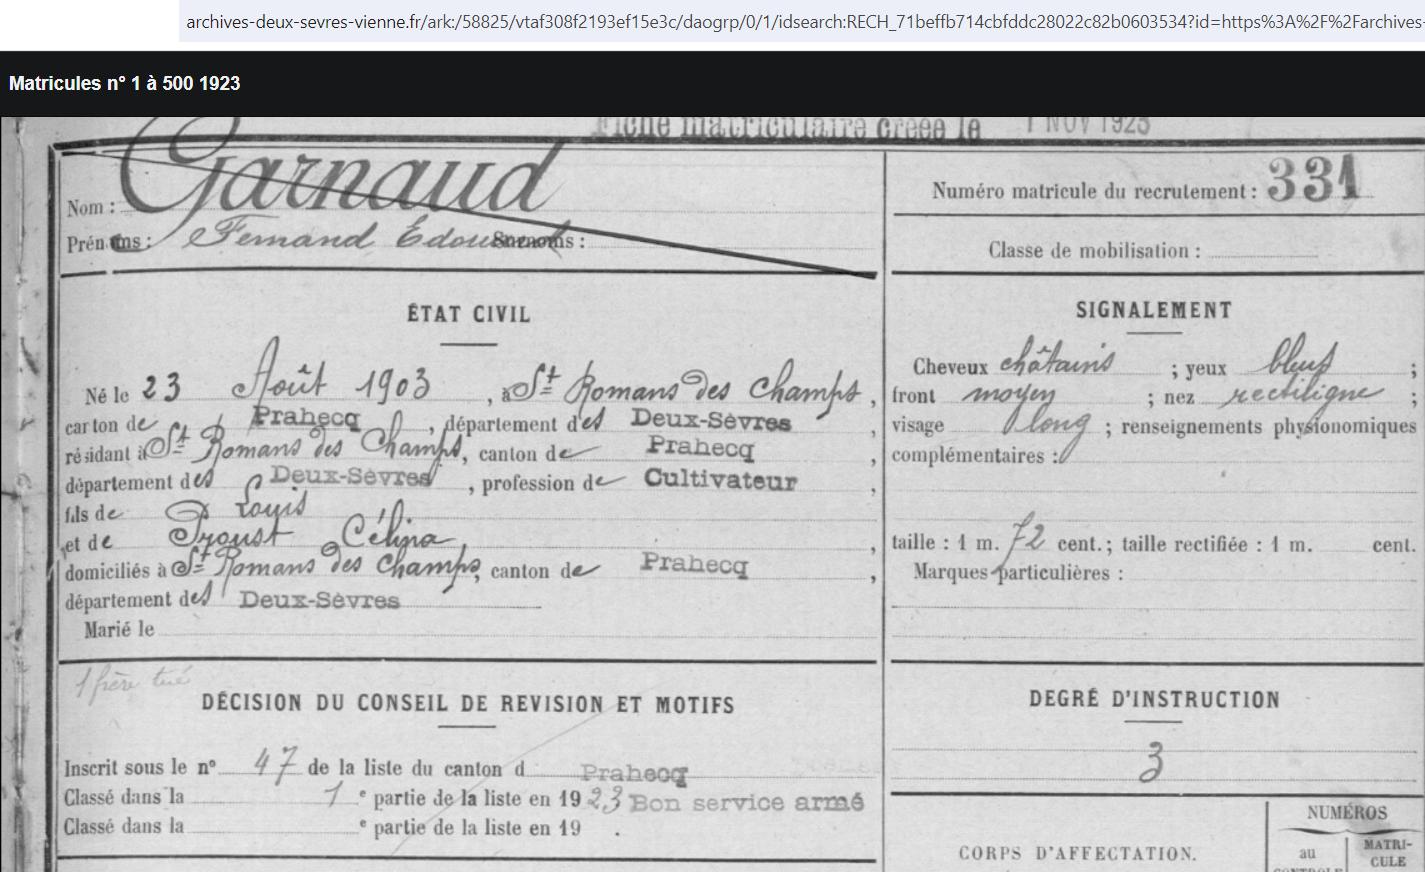 archives-deux-sevres-vienne.fr/ark:/58825/vtaf308f2193ef15e3c/daogrp/0/1/idsearch:RECH_71beffb714cbfddc28022c82b0603534?id=https%3A%2F%2Farchives-
Matricules n° 1 à 500 1923
Fiche matriculaire créée le 1 NOV 1923
Nom : Garnaud
Prénoms : Fernand Édouard Surnoms :
Numéro matricule du recrutement : 331
Classe de mobilisation :
ÉTAT CIVIL
Né le 23 Août 1903, à St Romans des Champs,
canton de Prahecq, département des Deux-Sèvres,
résidant à St Romans des Champs, canton de Prahecq,
département des Deux-Sèvres, profession de Cultivateur,
fils de Louis
et de Proust Célina,
domiciliés à St Romans des Champs, canton de Prahecq,
département des Deux-Sèvres
Marié le
SIGNALEMENT
Cheveux châtains ; yeux bleus ;
front moyen ; nez rectiligne ;
visage long ; renseignements physionomiques
complémentaires :
taille : 1 m. 72 cent. ; taille rectifiée : 1 m. cent.
Marques particulières :
1 frère tué
DÉCISION DU CONSEIL DE REVISION ET MOTIFS
Inscrit sous le n° 47 de la liste du canton d Prahecq
Classé dans la 1 e partie de la liste en 1923 Bon service armé
Classé dans la e partie de la liste en 19 .
DEGRÉ D'INSTRUCTION
3
CORPS D'AFFECTATION.
NUMÉROS
au
CONTROLE
MATRI-
CULE